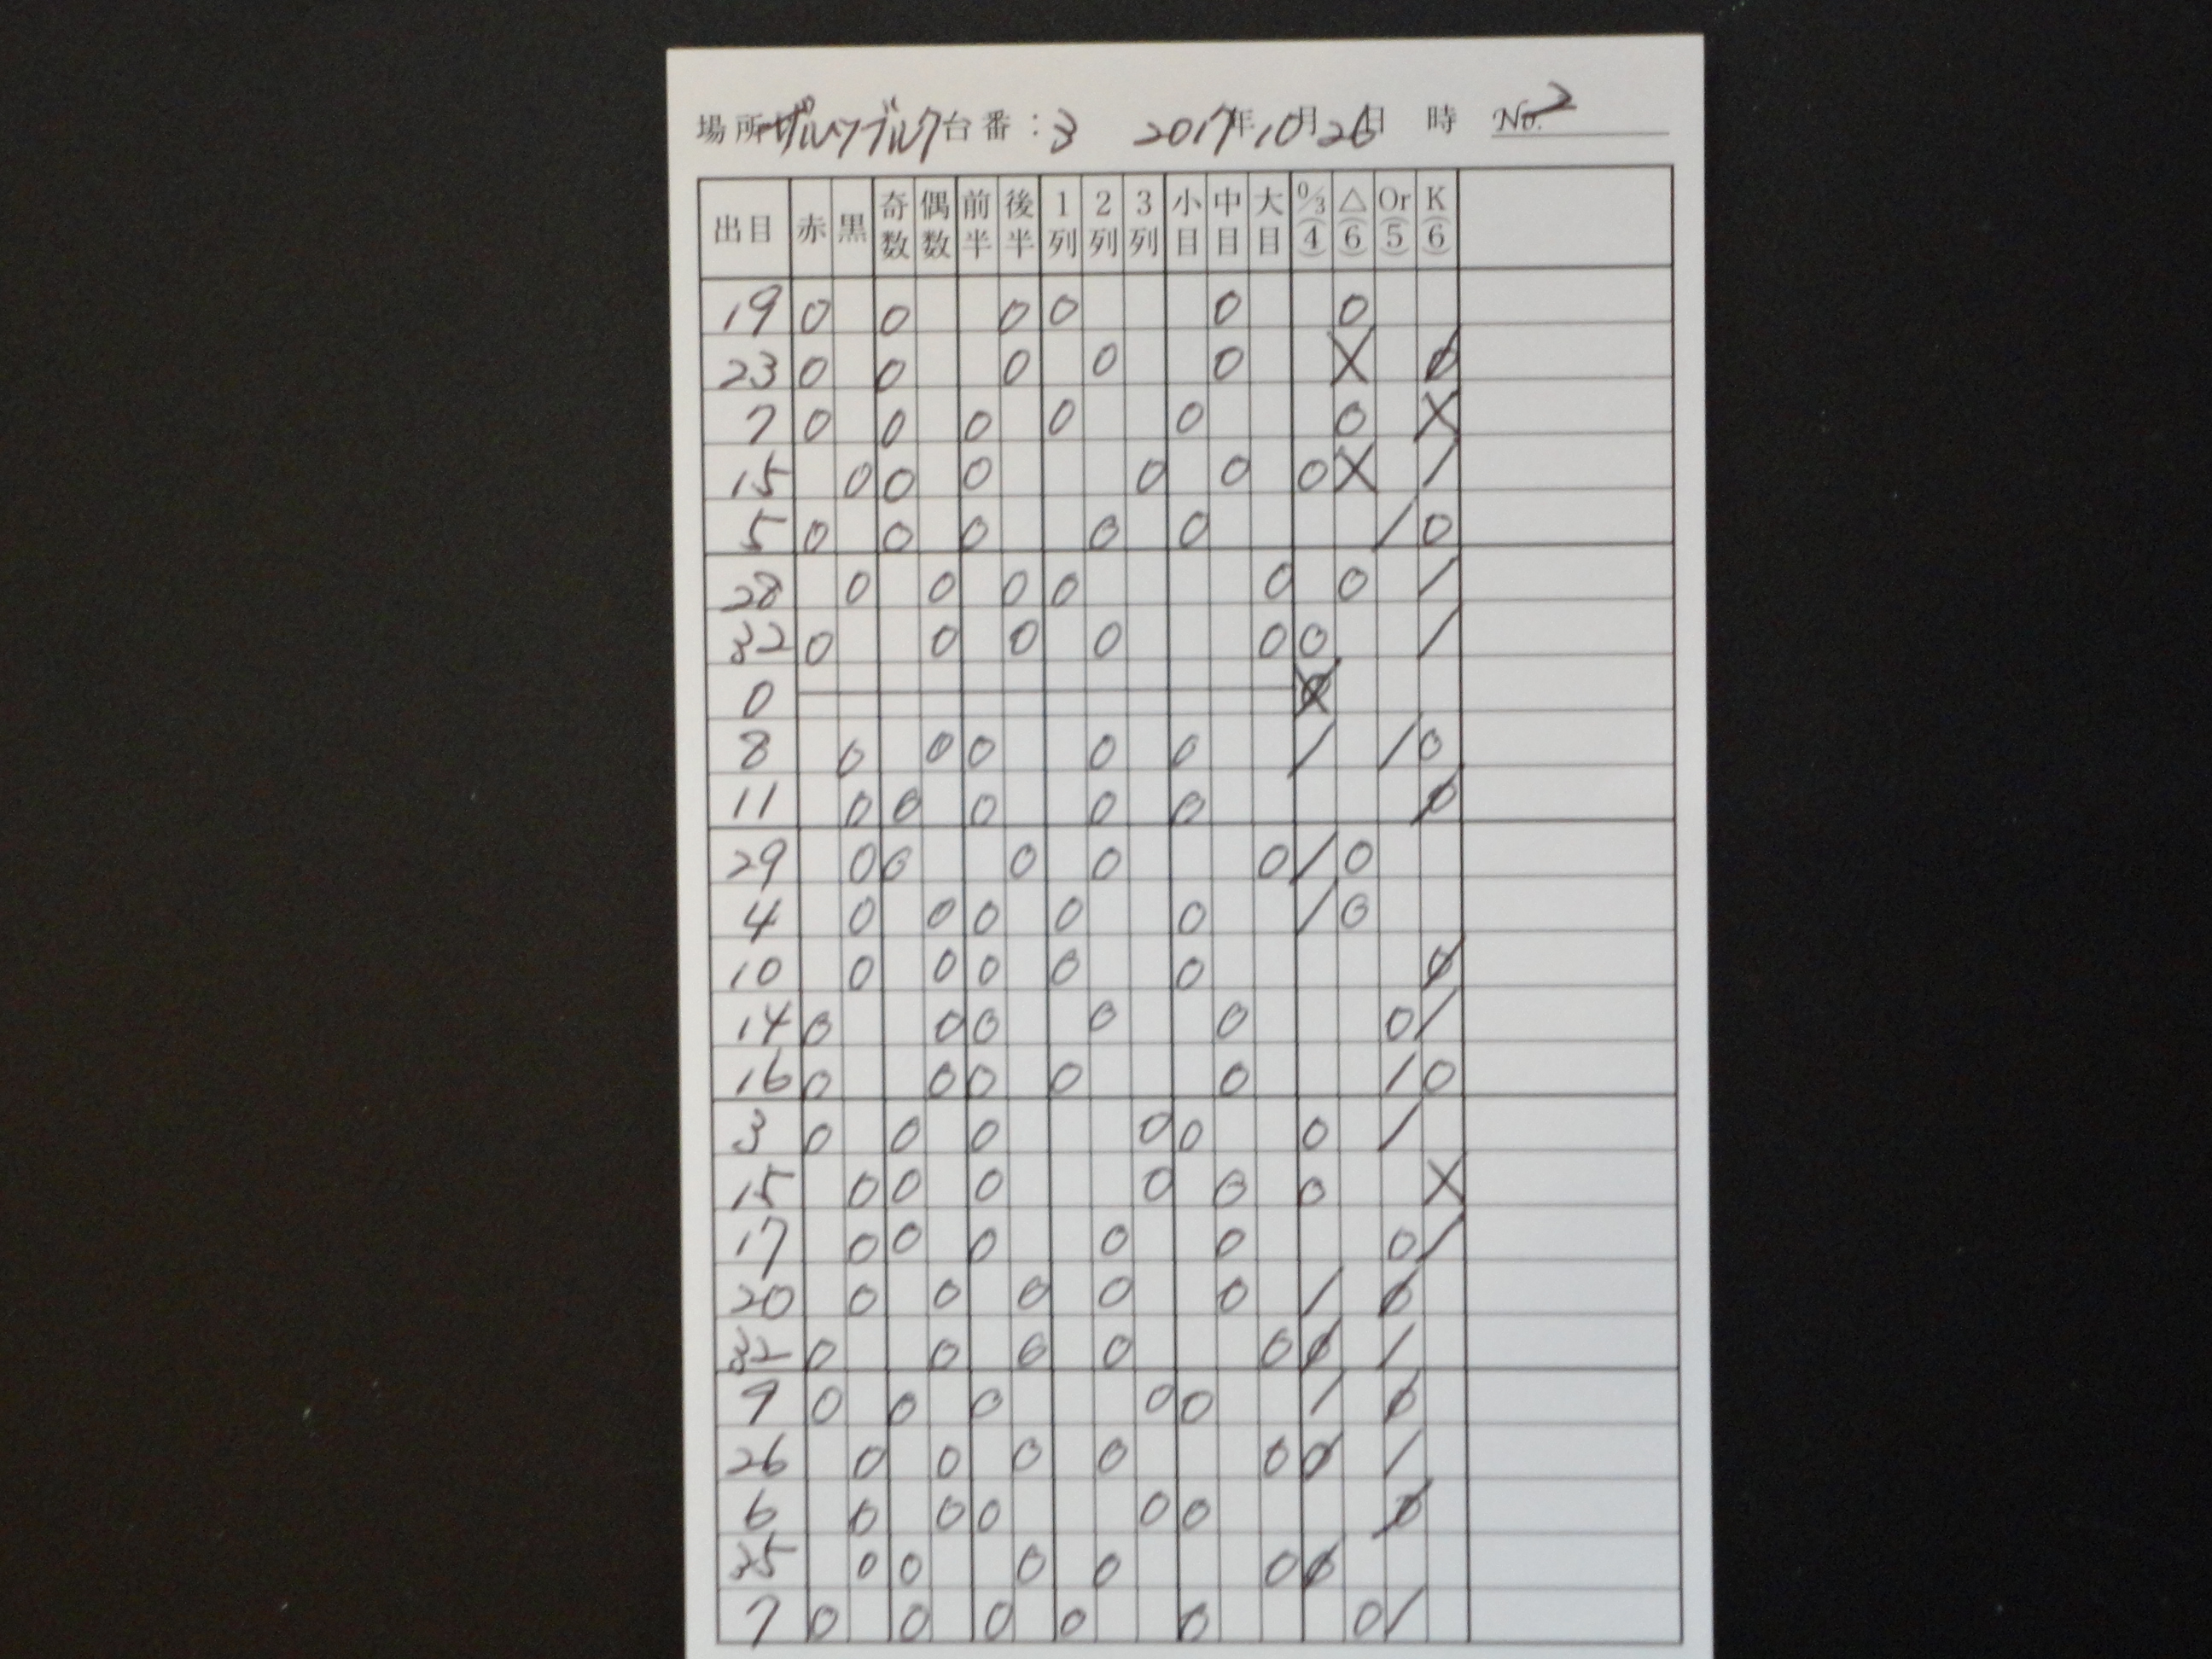 場所 ザルツブルク 台番：3 2017年10月26日 時 No. 2
出目 赤 黒 奇数 偶数 前半 後半 1列 2列 3列 小目 中目 大目 0/3(4) △(6) Or(5) K(6)
19 0 0 0 0 0 0
23 0 0 0 0 0 X Ø
7 0 0 0 0 0 0 X
15 0 0 0 0 0 0 X /
5 0 0 0 0 0 / 0
28 0 0 0 0 0 0 /
32 0 0 0 0 0 0 /
0
8 0 0 0 0 0 / / 0
11 0 0 0 0 0 Ø
29 0 0 0 0 0 / 0
4 0 0 0 0 0 / 0
10 0 0 0 0 0 Ø
14 0 0 0 0 0 0 /
16 0 0 0 0 0 / 0
3 0 0 0 0 0 0 /
15 0 0 0 0 0 0 X
17 0 0 0 0 0 0 /
20 0 0 0 0 0 / Ø
32 0 0 0 0 0 Ø /
9 0 0 0 0 0 / Ø
26 0 0 0 0 0 Ø /
6 0 0 0 0 0 Ø
35 0 0 0 0 0 Ø
7 0 0 0 0 0 0 /